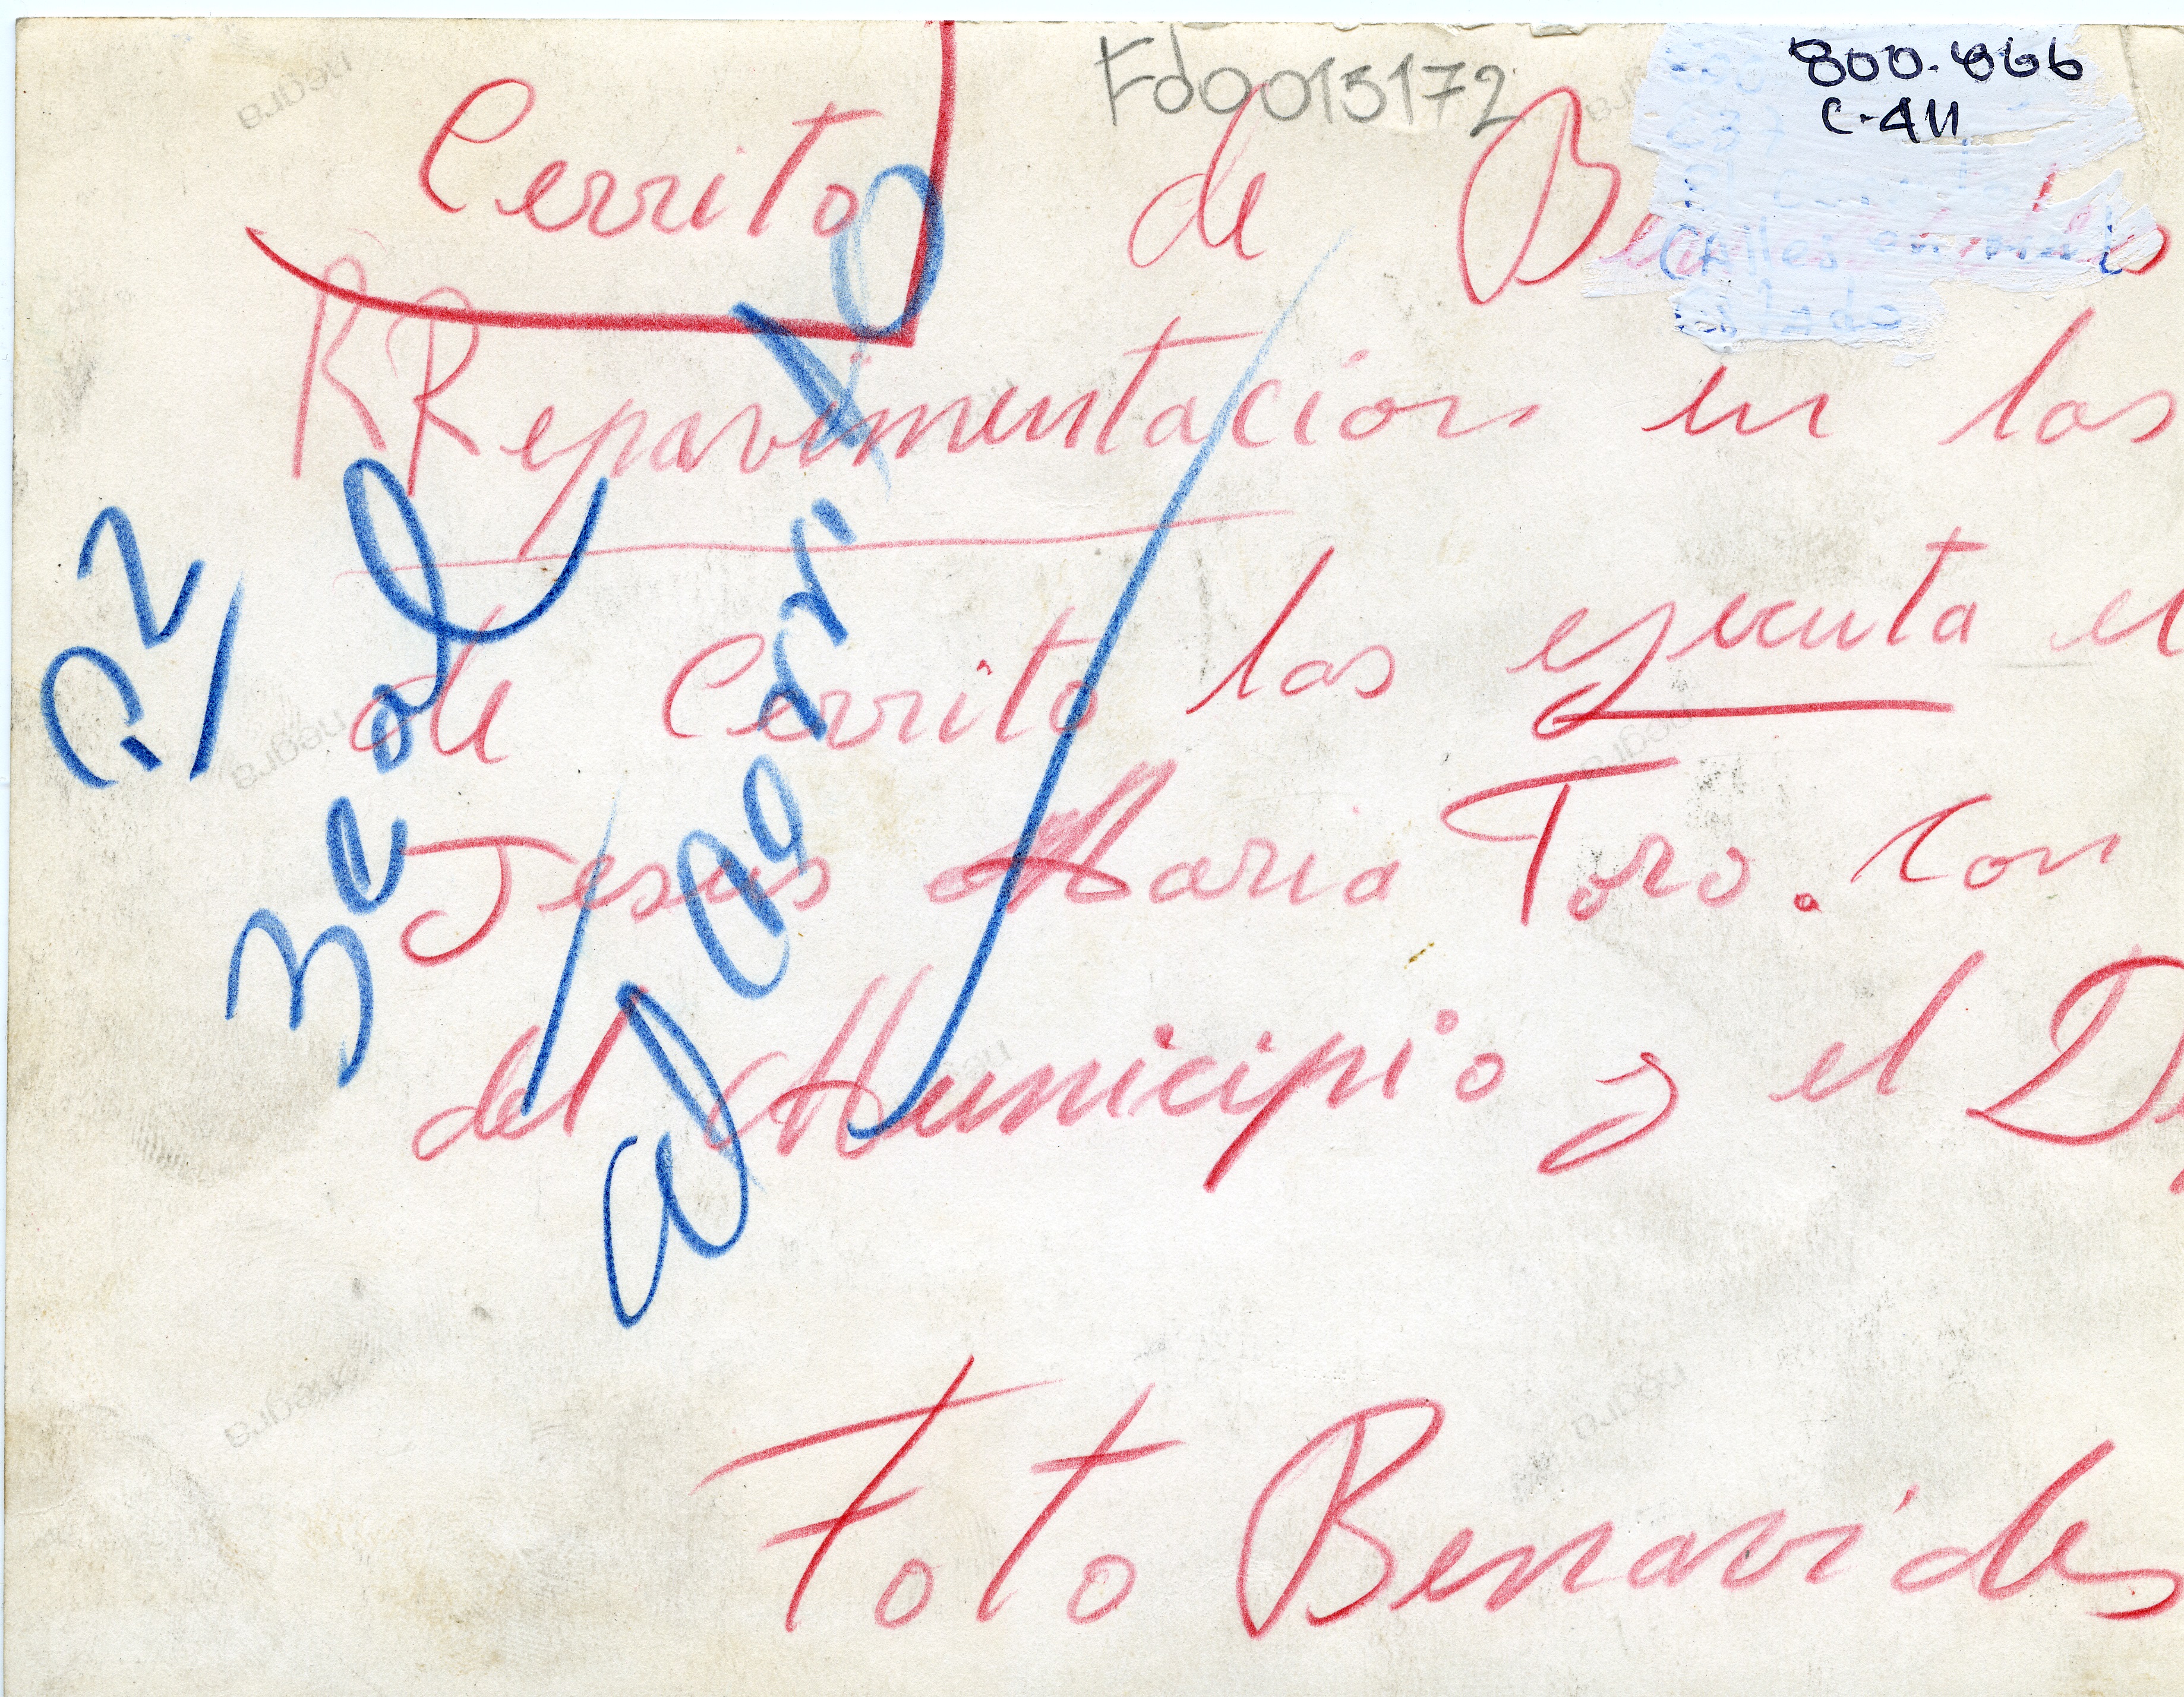 Fd0015172
800.866
C-411
Cerrito de
RRepavimentacion en las
de Cerrito las ejecuta el
Jesus Maria Toro. con
del Municipio y el
Foto Benavides
P2
3 col
al Cerrito
negra